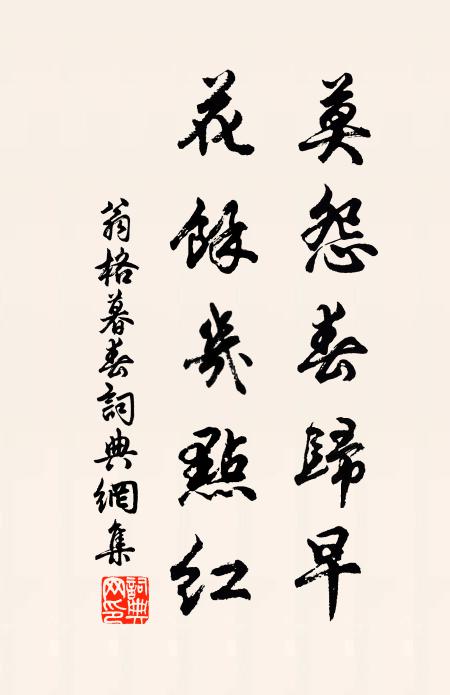 莫怨春歸早
花餘幾點紅
翁格暮春詞典網集
詞典网印